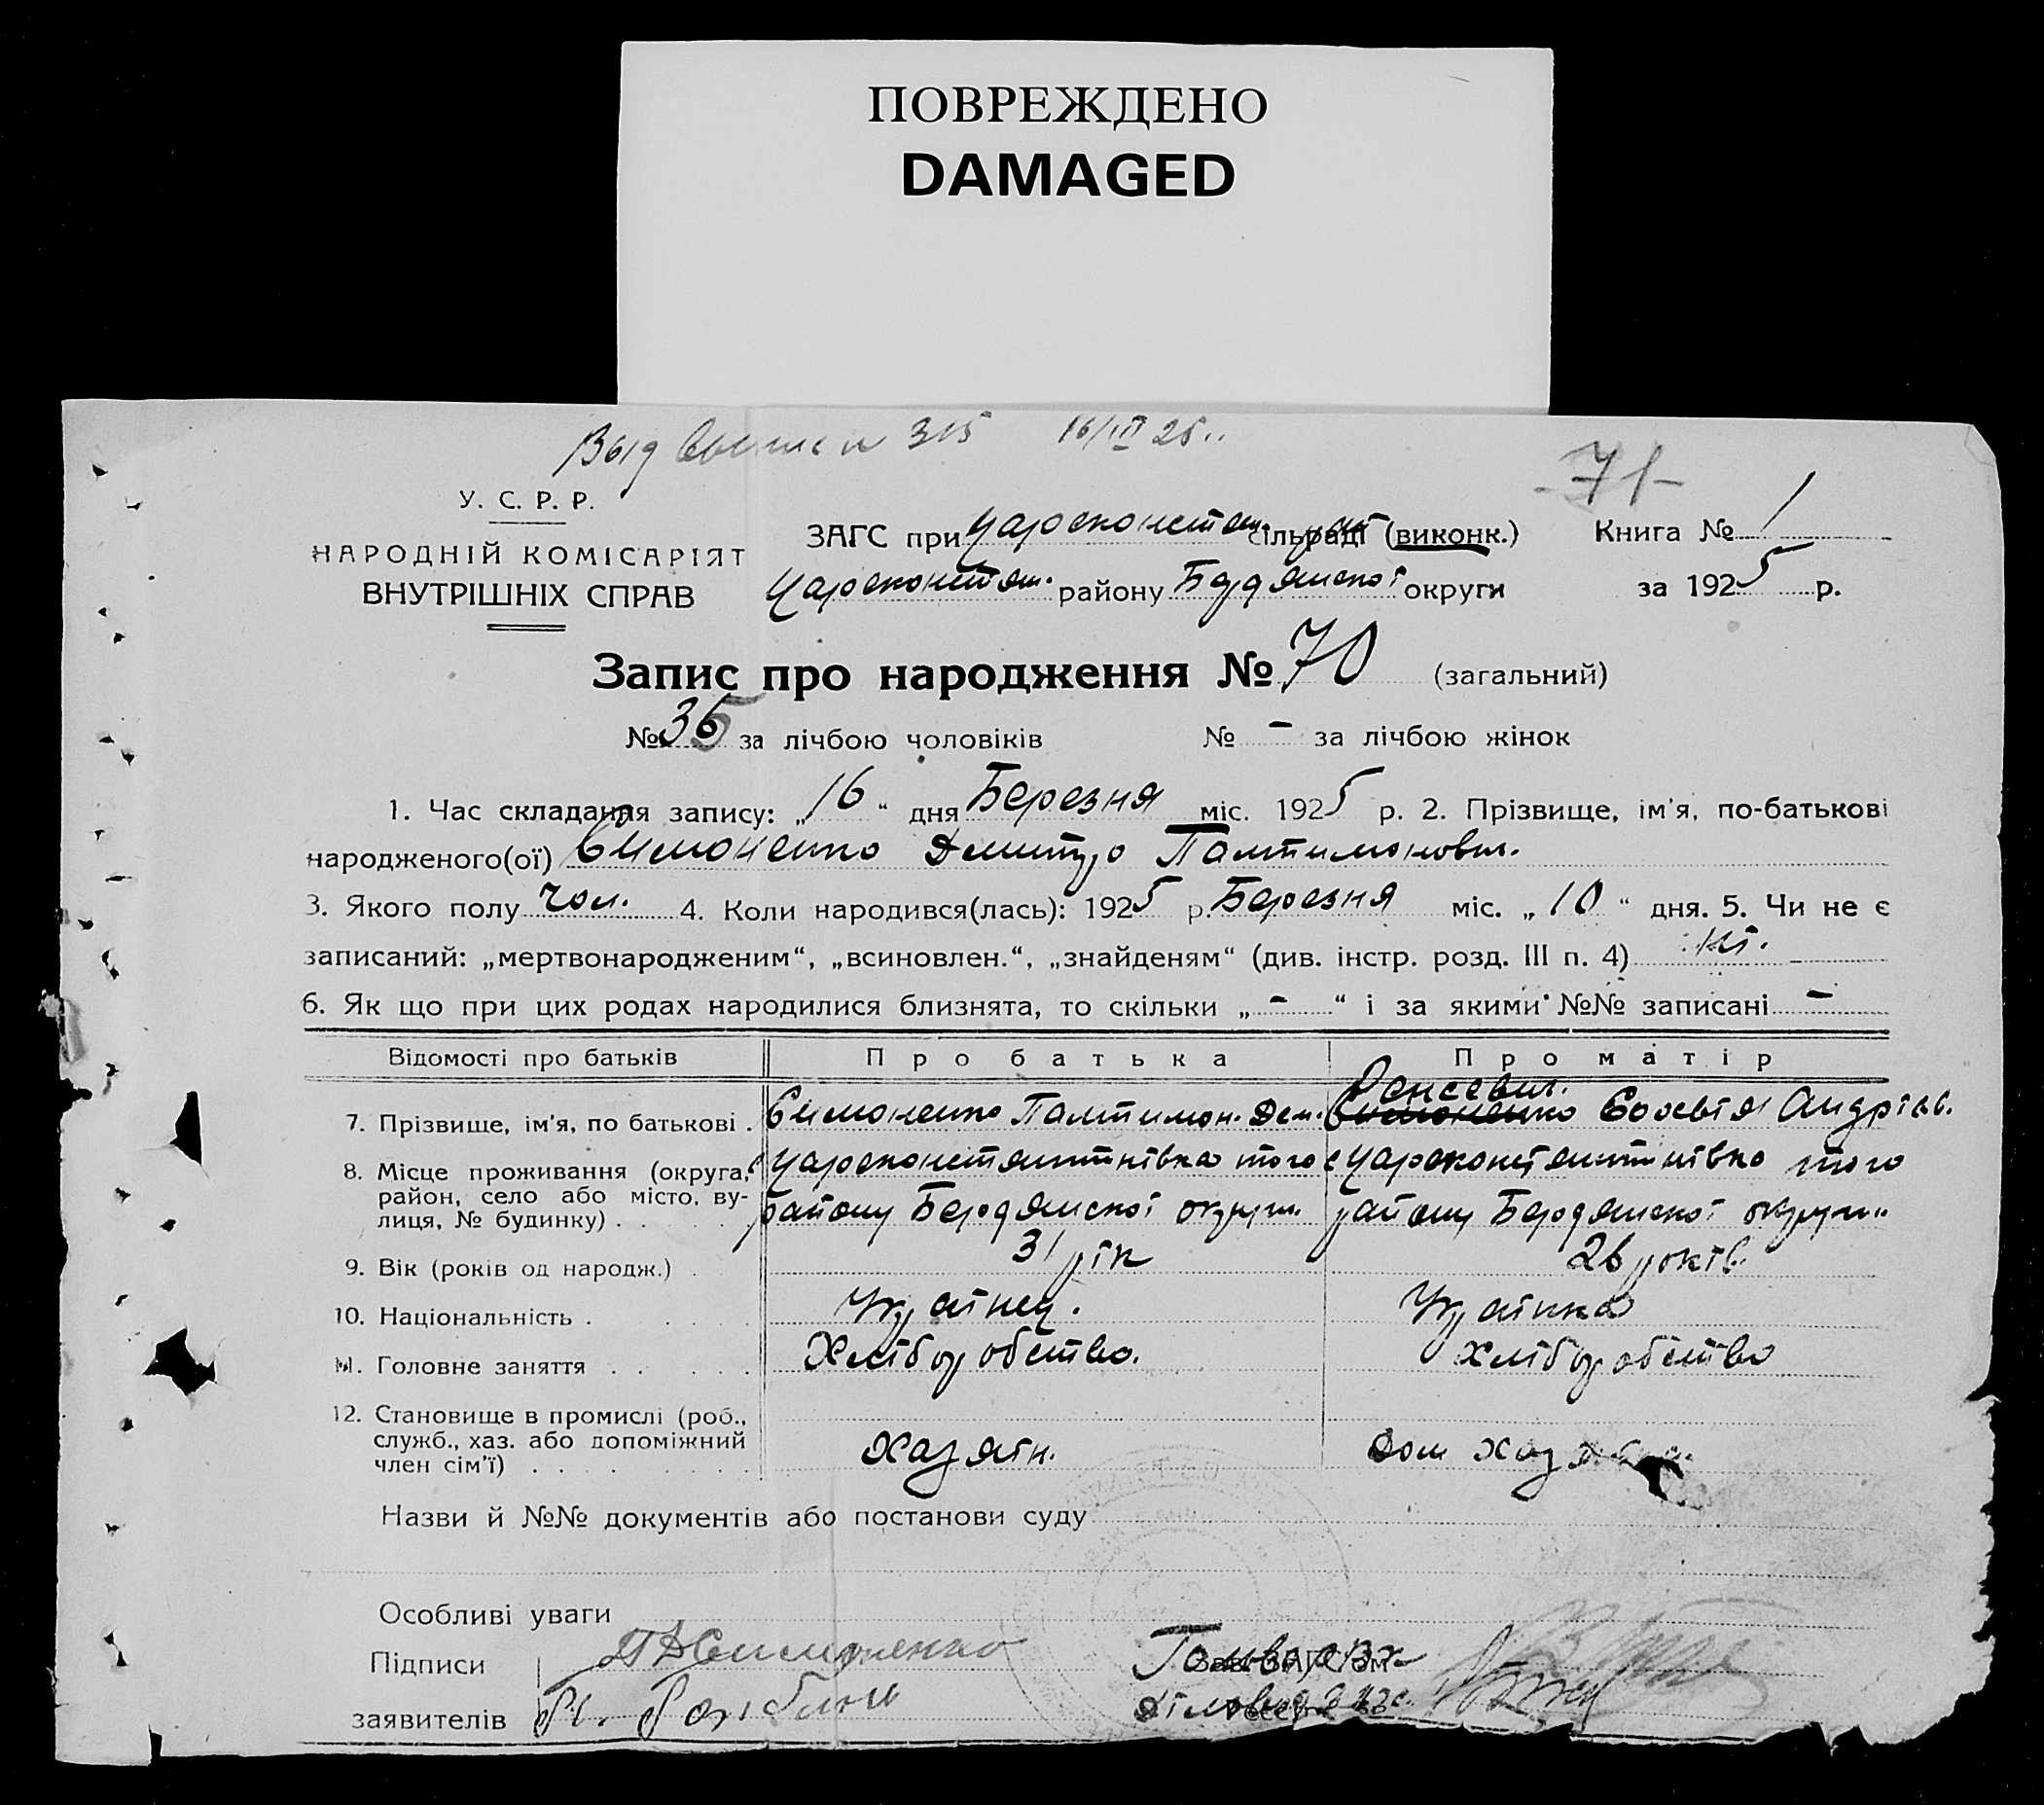 ПОВРЕЖДЕНО
DAMAGED
Выд 315 16/III 25
-71-
У. С. Р. Р.
НАРОДНІЙ КОМІСАРІЯТ
ВНУТРІШНІХ СПРАВ
ЗАГС при Царсконстян. сільраді (виконк.) Книга № 1
Царсконстян. району Бердянської округи за 1925 р.
Запис про народження № 70 (загальний)
№ 35 за лічбою чоловіків № – за лічбою жінок
1. Час складання запису: „16“ дня Березня міс. 1925 р. 2. Прізвище, ім'я, по-батькові
народженого(ої) Симоненко Дмитро Пантимонович.
3. Якого полу чол. 4. Коли народився(лась): 1925 р. Березня міс. „10“ дня. 5. Чи не є
записаний: „мертвонародженим“, „всиновлен.“, „знайденям“ (див. інстр. розд. III п. 4) ні.
6. Як що при цих родах народилися близнята, то скільки „–“ і за якими №№ записані –
Відомості про батьків Про батька Про матір
7. Прізвище, ім'я, по батькові . Симоненко Пантимон. Дем. Симоненко Андріїв.
8. Місце проживання (округа, район, село або місто, вулиця, № будинку) . с Царсконстянтинівка того с Царсконстянтинівка того
району Бердянської округи. району Бердянської округи
9. Вік (років од народж.) . 31 рік 26 років
10. Національність . Українец. Українка
11. Головне заняття . Хліборобство. хліборобство
12. Становище в промислі (роб., служб., хаз. або допоміжний член сім'ї) . Хазяїн. Дом
Назви й №№ документів або постанови суду
Особливі уваги
Підписи П Д Симоненко
заявителів